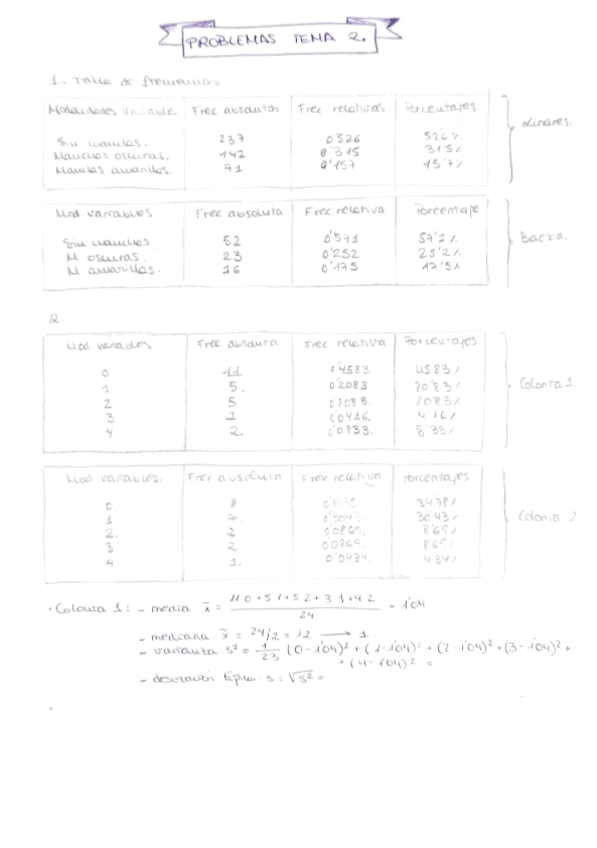 PROBLEMAS TEMA 2.
1. Tabla de frecuencias
Modalidades variable. Frec absolutas Frec relativas Porcentajes
Sin manchas. 237 0'526 52'6%
Manchas oscuras. 142 0'315 31'5%
Manchas amarillas. 71 0'157 15'7%
Linares.
Mod variables Frec absoluta Frec relativa Porcentaje
Sin manchas 52 0'571 57'1%
M oscuras. 23 0'252 25'2%
M amarillas. 16 0'175 17'5%
Baeza.
2.
Mod variables Frec absoluta Frec relativa Porcentajes
0 11 0'4583 45'83%
1 5. 0'2083 20'83%
2 5 0'2083. 20'83%
3 1 0'0416. 4'16%
4 2. 0'0833. 8'33%
Colonia 1.
Mod variables. Frec absoluta Frec relativa Porcentajes
0. 8 0'3478. 34'78%
1 7. 0'3043. 30'43%
2. 2 0'0869. 8'69%
3 2 0'0869. 8'69%
4 1. 0'0434. 4'34%
Colonia 2
· Colonia 1: - media x̄ = 11·0+5·1+5·2+3·1+4·2 / 24 = 1'04
- mediana x̃ = 24/2 = 12 → 1
- varianza s² = 1/23 (0-1'04)² + (1-1'04)² + (2-1'04)² + (3-1'04)² +
+ (4-1'04)² =
- desviación típica s = √s² =